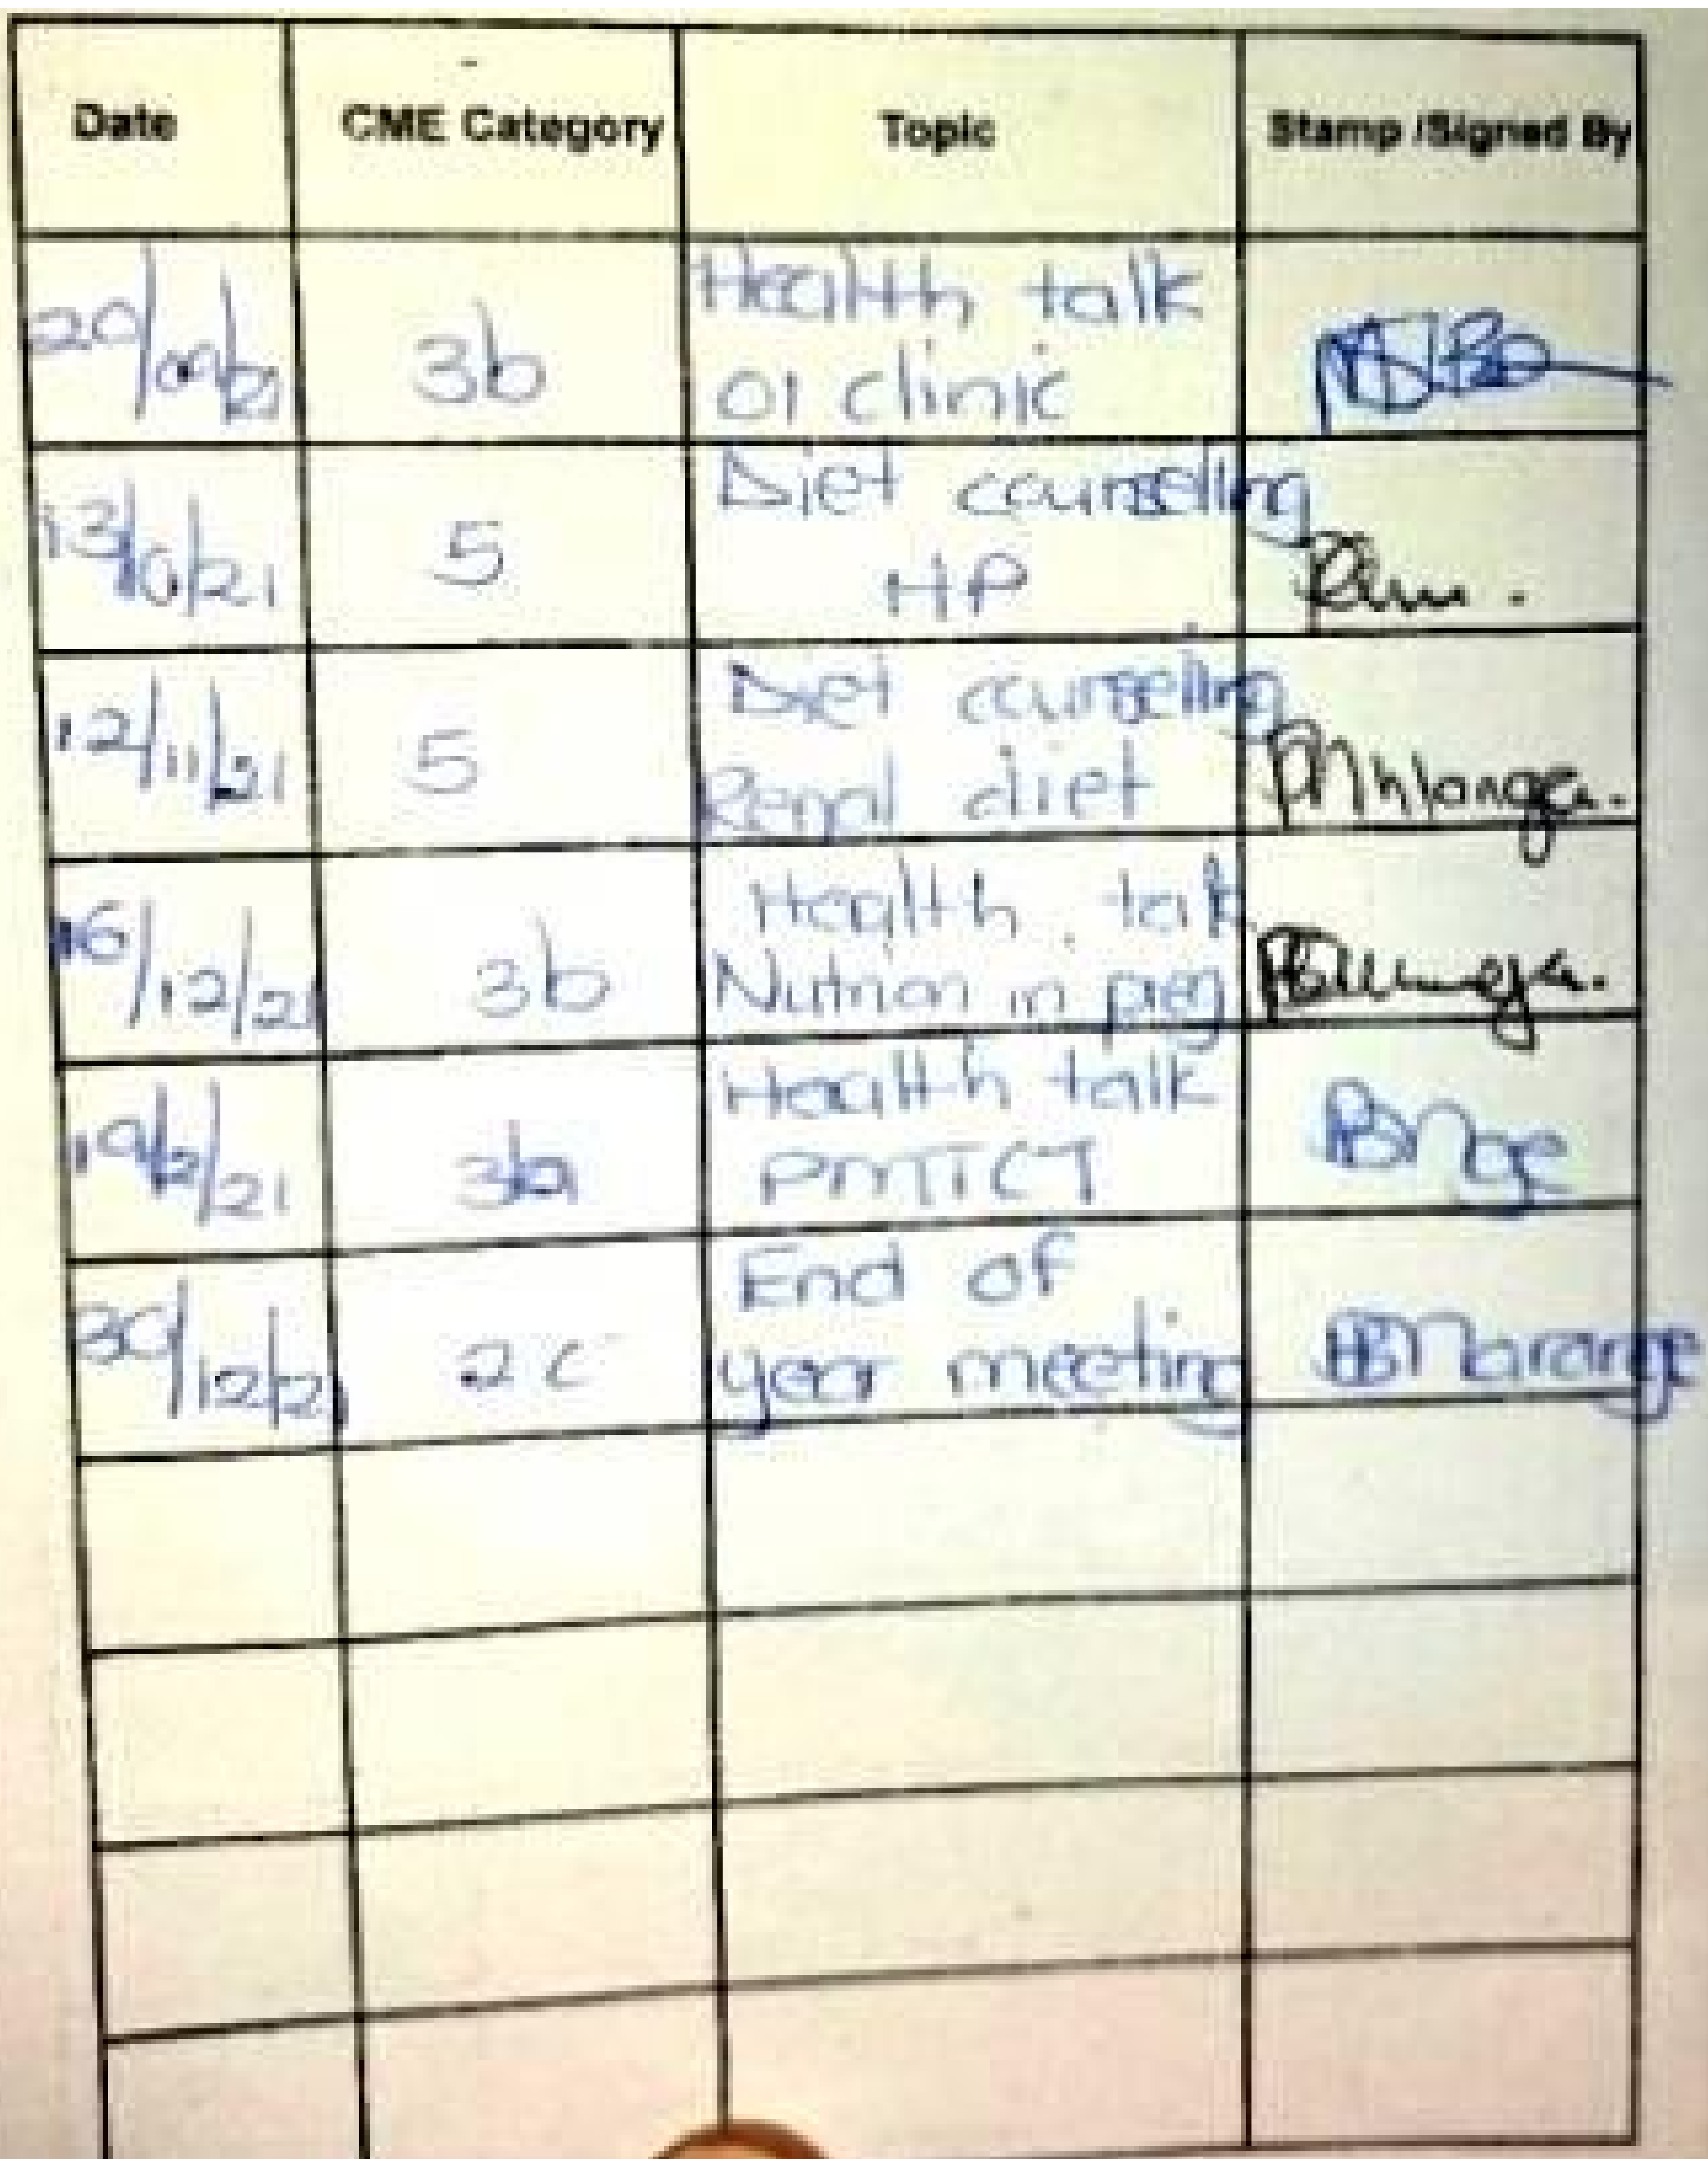 Date CME Category Topic Stamp /Signed By
20/09/21 3b Health talk
OI clinic
13/10/21 5 Diet counselling
HP
12/11/21 5 Diet counselling
Renal diet Mhlanga.
16/12/21 3b Health talk
Nutrion in preg
19/2/21 Health talk
PMTCT
30/12/21 2c End of
year meeting Marange